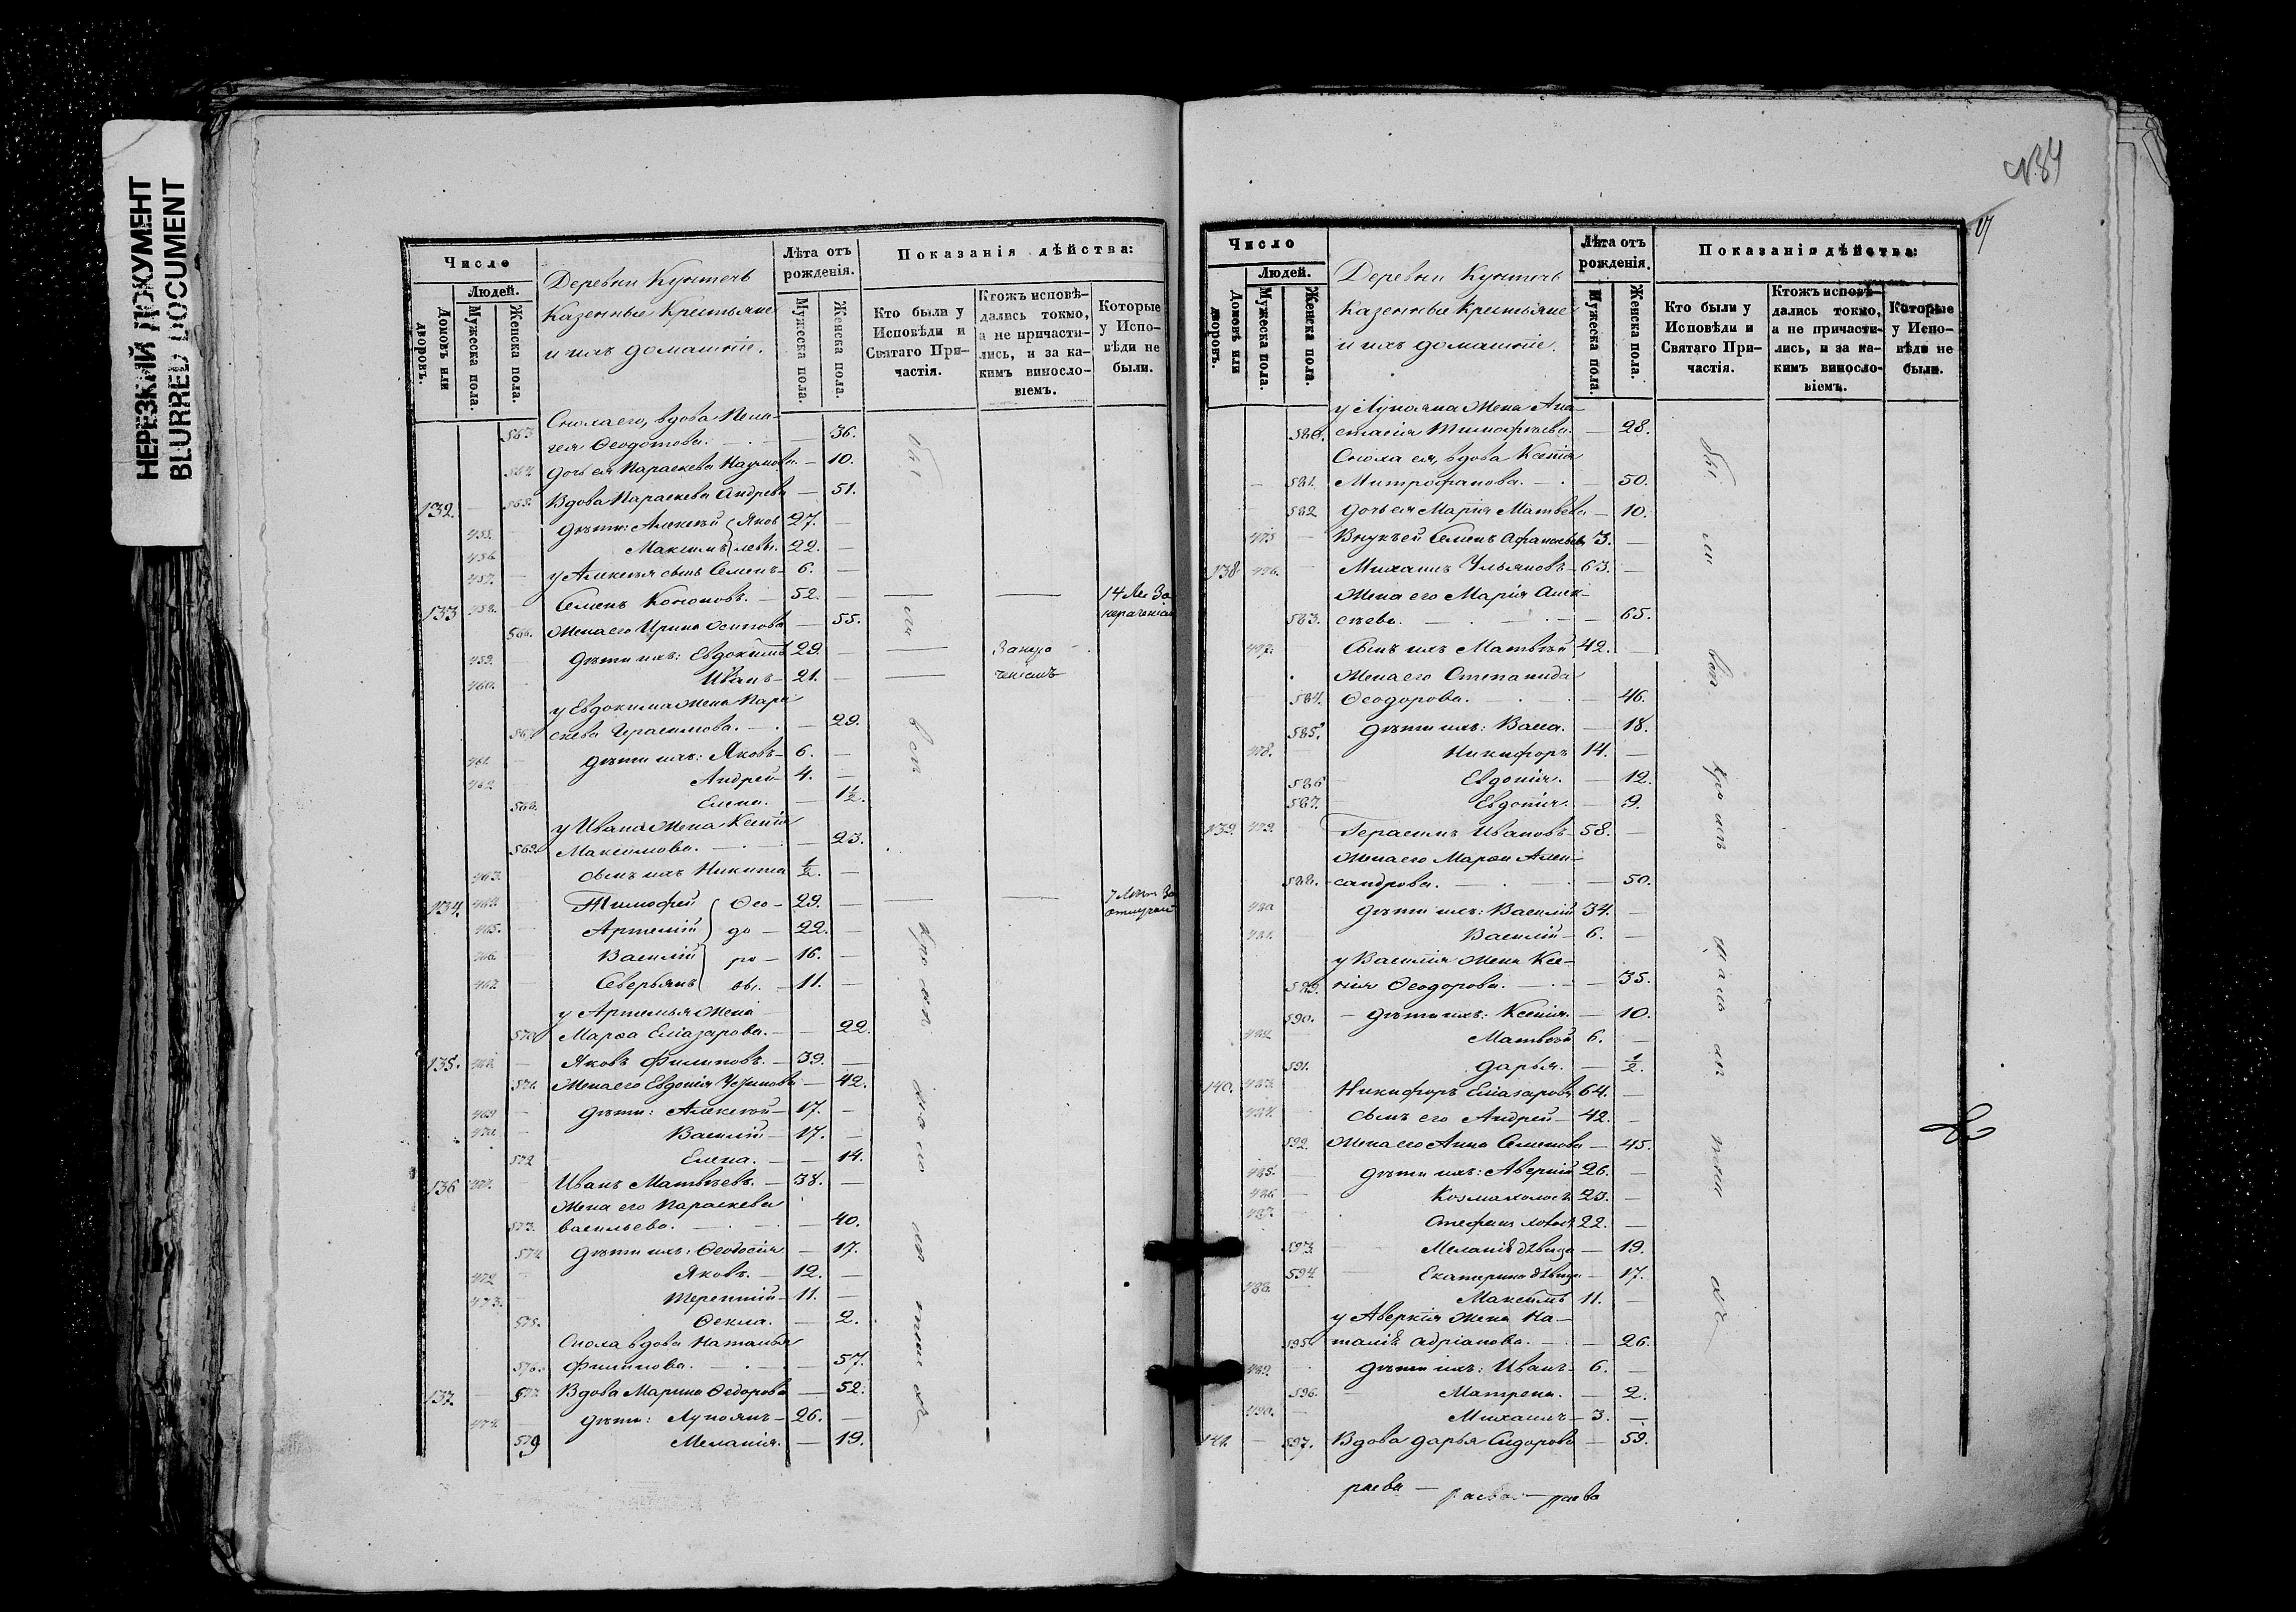 НЕРЕЗКИЙ ДОКУМЕНТ
BLURRED DOCUMENT
Число
Людей.
Домовъ или дворовъ.
Мужеска пола.
Женска пола.
Деревни
Казенные Крестьяне
и ихъ домашніе.
Лѣта отъ рожденія.
Мужеска пола.
Женска пола.
Показанія дѣйства:
Кто были у Исповѣди и Святаго Причастія.
Ктожъ исповѣдались токмо, а не причастились, и за какимъ винословіемъ.
Которые у Исповѣди не были.
Сноха его, вдова Пела-
563 гея Ѳеодотова. — 36.
564 дочь ея Параскева Наумова. — 10.
132. 565. Вдова Параскева Андреева — 51.
455. дѣти: Алексѣй Яков 27. —
456. Максимъ левы. 22. —
457. у Алексѣя сынъ Семенъ 6. —
133 458. Семенъ Кононовъ. 52. —
566. Жена его Ирина Осипова — 55.
459. дѣти ихъ: Евдокимъ 29. —
460. Иванъ 21. —
у Евдокима жена Пара
567. скева Герасимова. — 29.
461. дѣти ихъ: Яковъ 6. —
462. Андрей 4. —
568. Елена. — 1½.
у Ивана жена Ксенія
569. Максимова. — 23.
463. сынъ ихъ Никита ½. —
134. 464. Тимофей Ѳео- 29. —
7 Лѣтъ За
465. Артемій до 22. —
466. Василій ро 16. —
467. Северьянъ вы. 11. —
у Артемья жена
570. Марѳа Елиазарова. — 22.
135. 468. Яковъ Филиповъ. 39. —
571. Жена его Евдокія Устинова — 42.
469 дѣти: Алексѣй 17. —
470. Василій 17. —
572 Елена. — 14.
136 471. Иванъ Матвѣевъ. 38. —
Жена его Параскева
573. васильева. — 40.
574. дѣти ихъ: Ѳеодосія — 17.
472 Яковъ. 12. —
473. Терентій 11. —
575. Ѳекла. — 2.
Сноха вдова Наталья
576. Филипова. — 57.
137. 577. Вдова Марина Ѳедорова — 52.
474. дѣти: Лукоянъ 26. —
579 Меланія. — 19.
№34
Число
Людей.
Домовъ или дворовъ.
Мужеска пола.
Женска пола.
Деревни
Казенные Крестьяне
и ихъ домашніе.
Лѣта отъ рожденія.
Мужеска пола.
Женска пола.
Показанія дѣйства:
Кто были у Исповѣди и Святаго Причастія.
Ктожъ исповѣдались токмо, а не причастились, и за какимъ винословіемъ.
Которые у Исповѣди не были.
у Лукояна Жена Ана-
580. стасія Тимофѣева. — 28.
Сноха ея, вдова Ксенія
581. Митрофанова. — 50.
582 дочь ея Марія Матвѣева — 10.
475 Внукъ ей Семенъ Афанасьевъ 3. —
138. 476. Михаилъ Ульяновъ 63. —
Жена его Марія Алек-
583. сѣева. — 65.
477. Сынъ ихъ Матвѣй 42. —
Жена его Степанида
584. Ѳеодорова. — 46.
585. дѣти ихъ: Васса. — 18.
478. Никифоръ 14. —
586 Евдокія. — 12.
587. Евдокія. — 9.
139. 479. Герасимъ Ивановъ 58. —
Жена его Марѳа Алек-
588. сандрова. — 50.
480 дѣти ихъ: Василій 34. —
481. Василій 6. —
у Василія жена Ксе-
589. нія Ѳеодорова. — 35.
590. дѣти ихъ: Ксенія. — 10.
482 Матвѣй 6. —
591. Дарья. — ½.
140. 483. Никифоръ Елиазаровъ 64. —
484. Сынъ его Андрей 42. —
592. Жена его Анна Семенова — 45.
485. дѣти ихъ: Аверкій 26. —
486 Козма холостъ 23. —
487. Стефанъ холост 22. —
593. Меланія дѣвица — 19.
594 Екатерина дѣвица — 17.
488. Максимъ 11. —
у Аверкія жена На-
595. талія Адріанова. — 26.
489. дѣти ихъ: Иванъ 6. —
596. Матрена. — 2.
490. Михаилъ 3. —
141. 597. Вдова Дарья Сидорова — 59.
раева — раева — раева